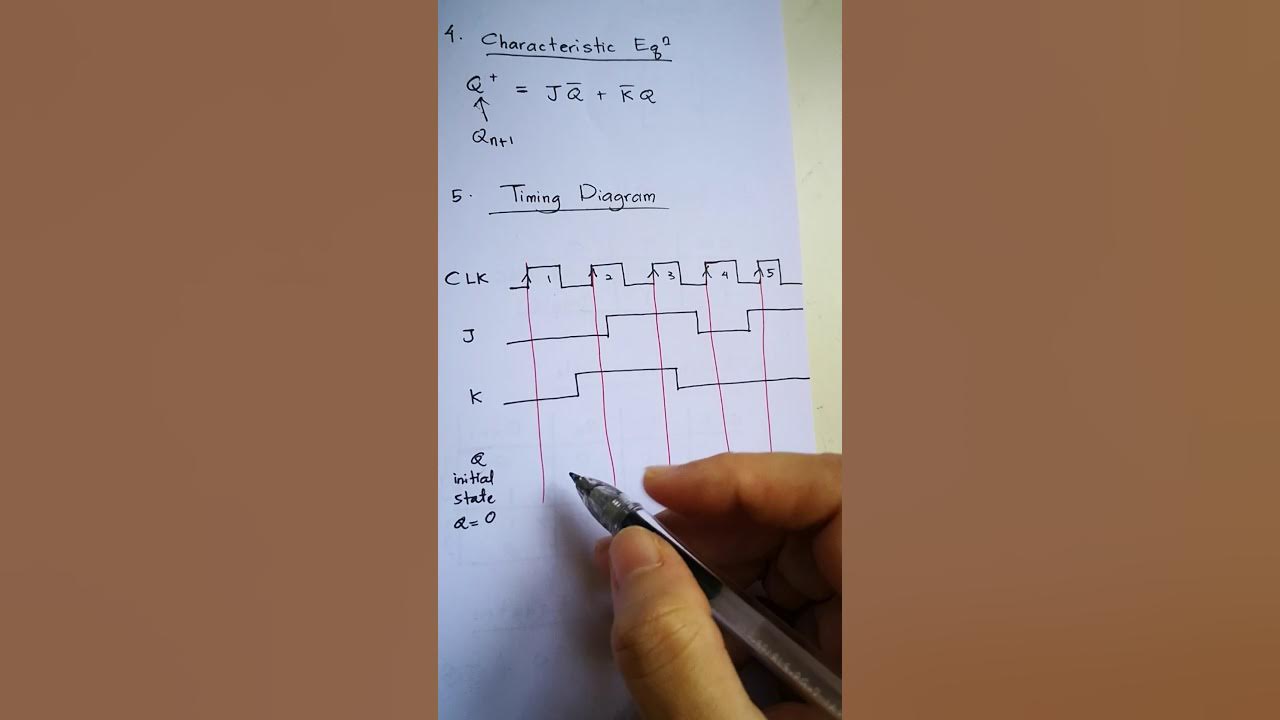 4. Characteristic Eqⁿ
Q⁺ = JQ̅ + K̅Q
Qn+1
5. Timing Diagram
CLK 1 2 3 4 5
J
K
Q
initial
state
Q = 0